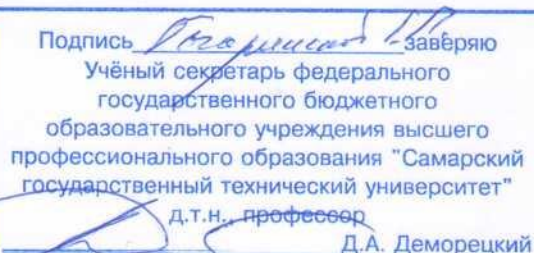 Подпись заверяю
Учёный секретарь федерального
государственного бюджетного
образовательного учреждения высшего
профессионального образования "Самарский
государственный технический университет"
д.т.н., профессор
Д.А. Деморецкий